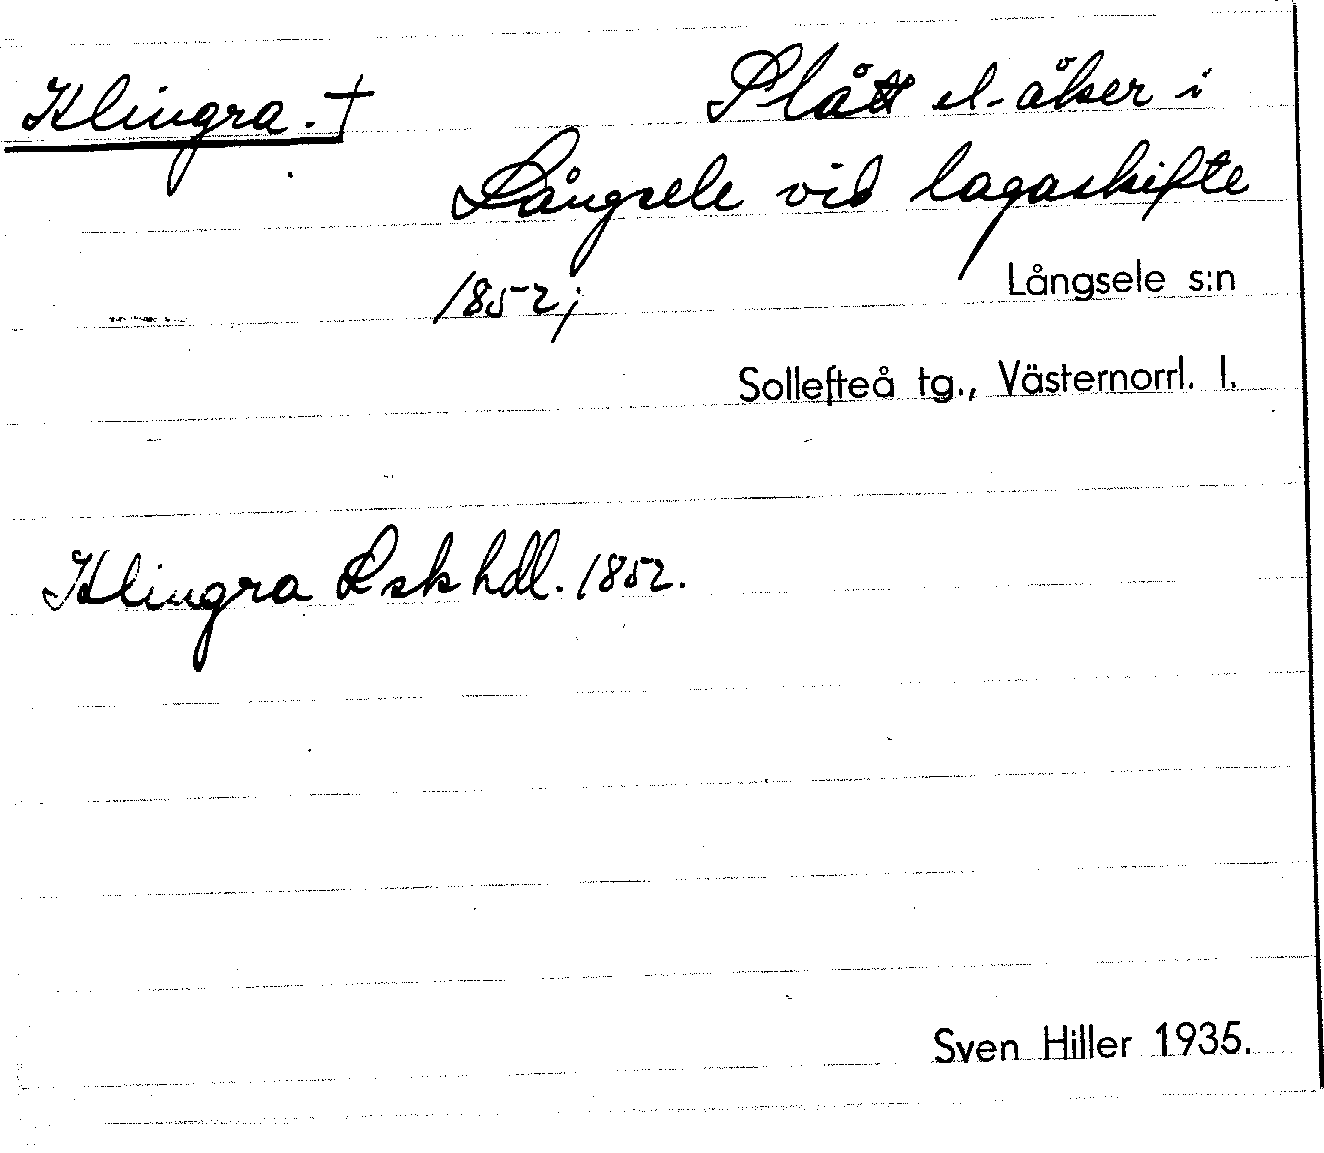 Klingra. † Slått el. åker i
Långsele vid lagaskifte
1852; Långsele s:n
Sollefteå tg., Västernorrl. l.
Klingra Lsk hdl. 1852.
Sven Hiller 1935.